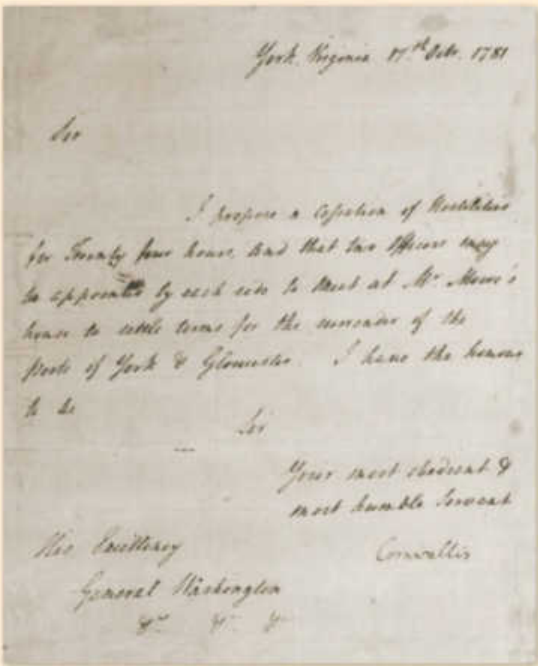 York, Virginia 17th Octr. 1781
Sir
I propose a Cessation of Hostilities
for Twenty four hours, and that two Officers may
be appointed by each side to meet at Mr. Moore's
house to settle terms for the surrender of the
Posts of York & Gloucester. I have the honour
to be
Sir
Your most obedient &
most humble Servant
Cornwallis
His Excellency
General Washington
&c &c &c